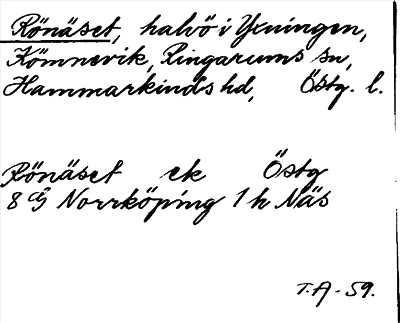 Rönäset, halvö i Yxningen,
Kömnevik, Ringarums sn,
Hammarkinds hd, Östg. l.
Rönäset ek Östg
8 Norrköping 1 h Näs
T.A-59.